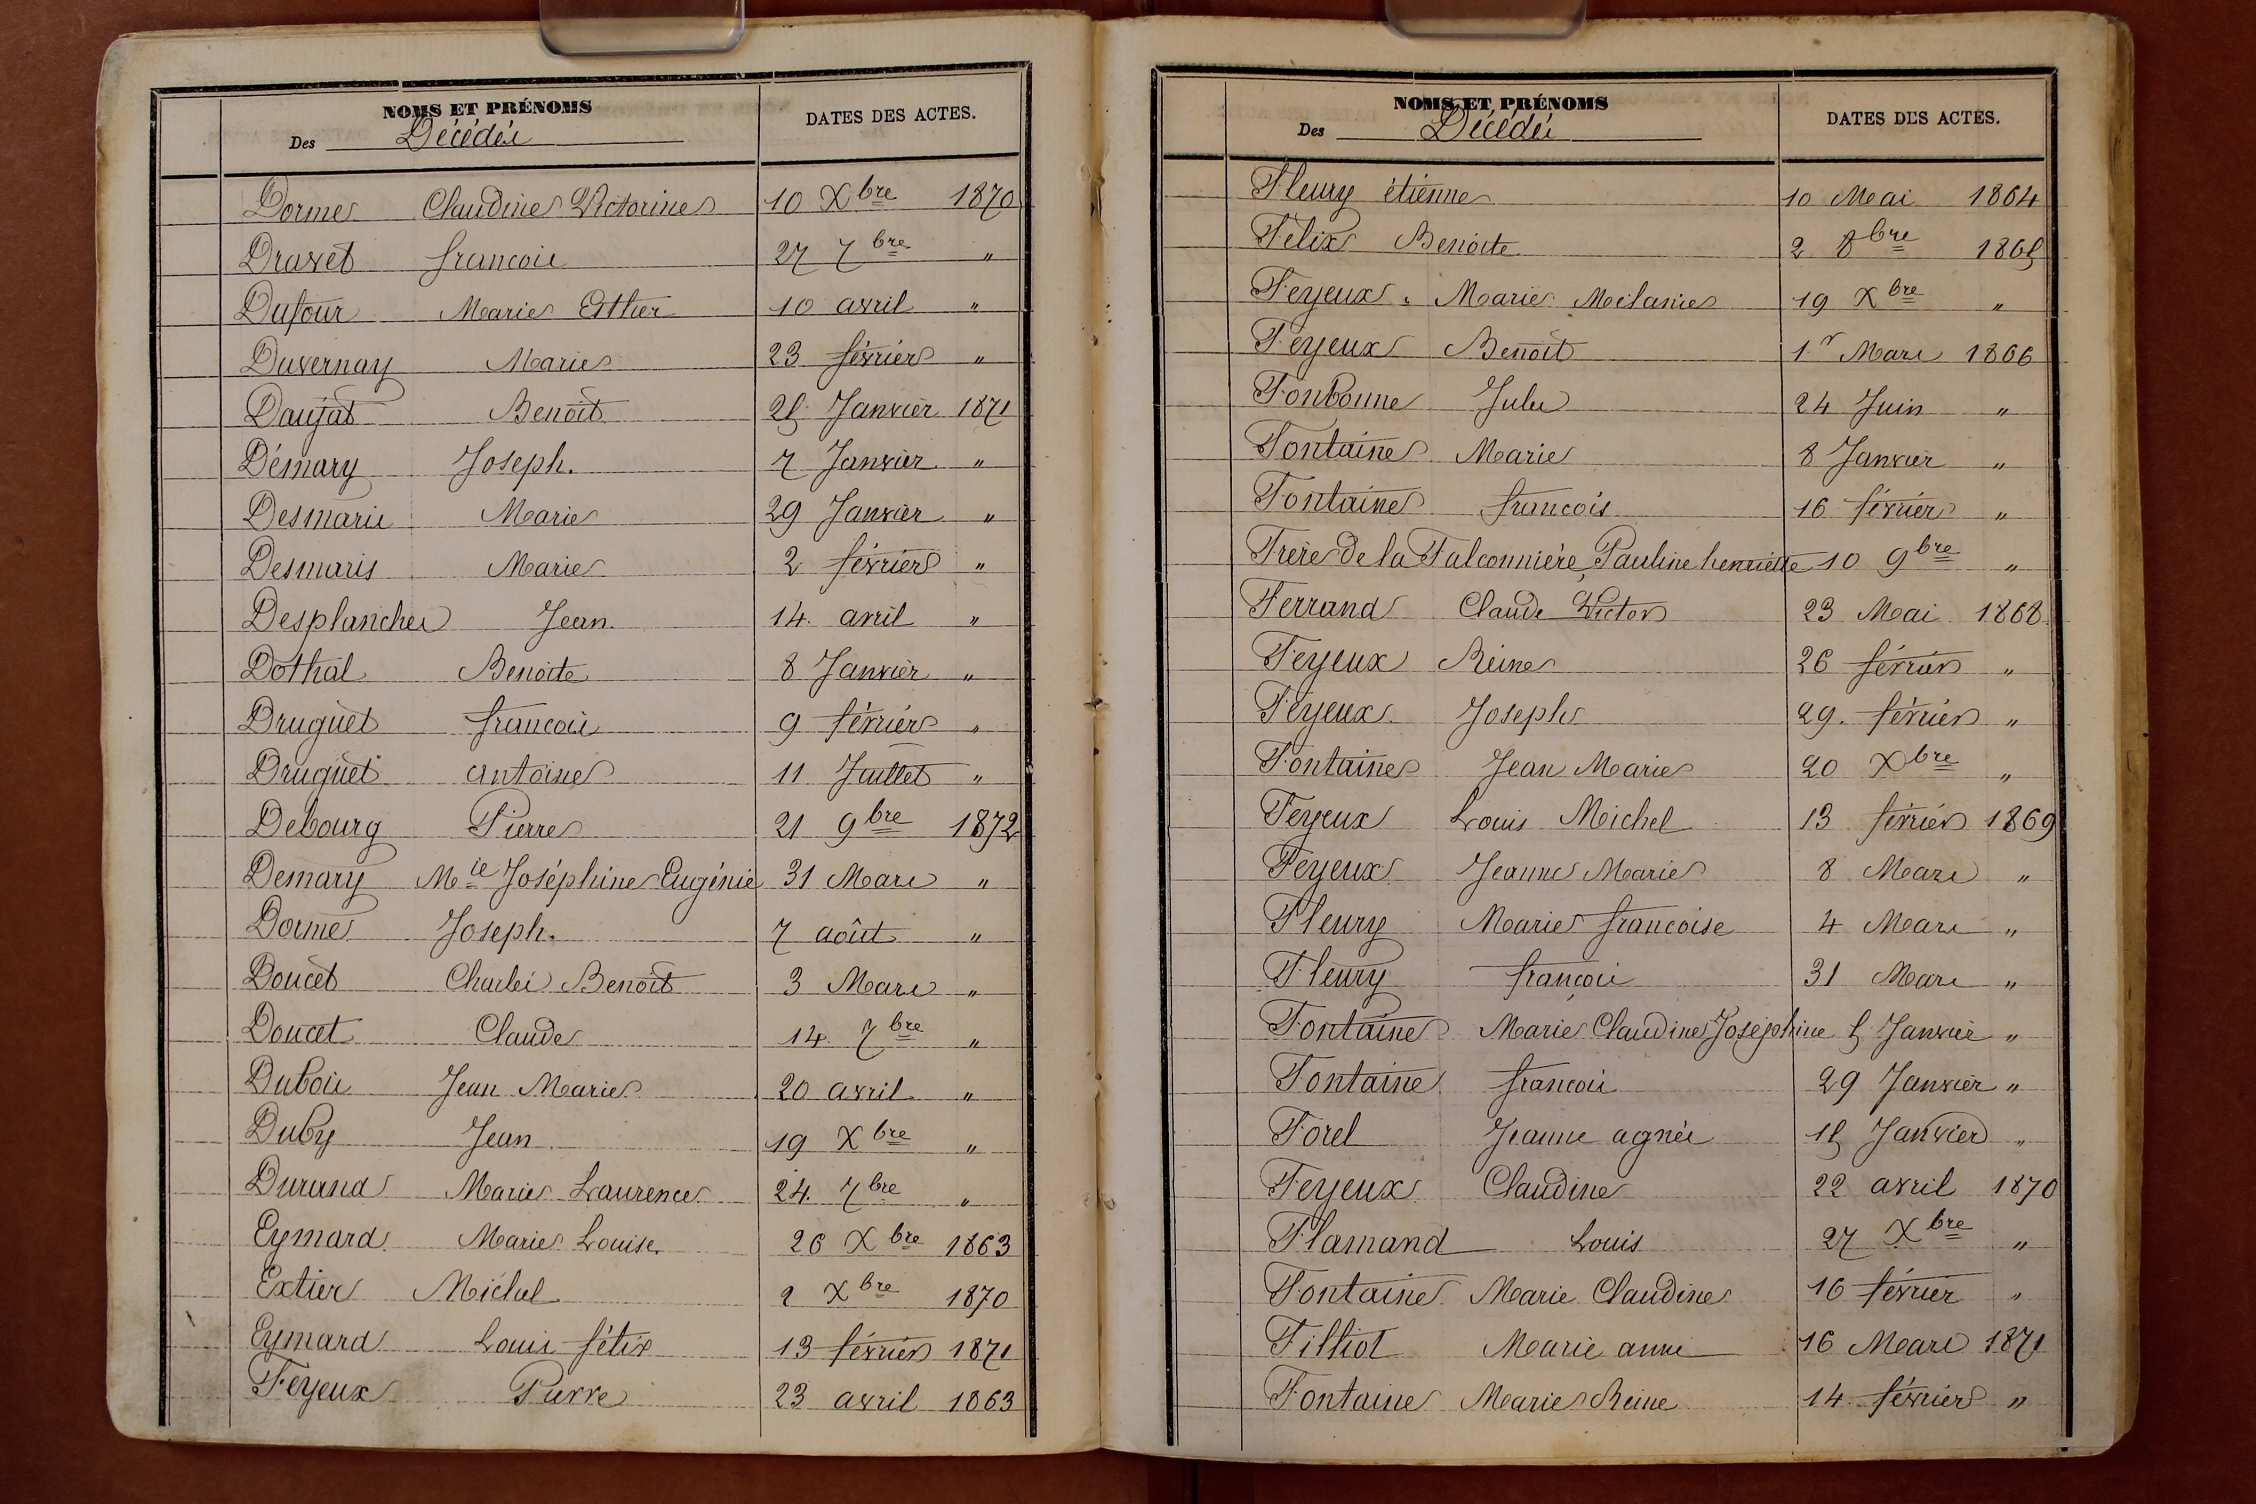 NOMS ET PRÉNOMS
Des Décédés
DATES DES ACTES.
Dorme Claudine Victorine 10 Xbre 1870
Dravet francois 27 7bre "
Dufour Marie Esther 10 avril "
Duvernay Marie 23 février "
Daujat Benoît 25 Janvier 1871
Démary Joseph. 7 Janvier "
Desmaris Marie 29 Janvier "
Desmaris Marie 2 février "
Desplanches Jean 14 avril "
Dothal Benoite 8 Janvier "
Druguet francois 9 février "
Druguet antoine 11 Juillet "
Debourg Pierre 21 9bre 1872
Demary Mie Joséphine Eugénie 31 Mars "
Dorme Joseph. 7 août "
Doucet Charles Benoit 3 Mars "
Doucet Claude 14 7bre "
Dubois Jean Marie 20 avril "
Duby Jean 19 Xbre "
Durand Marie Laurence 24 7bre "
Eymard Marie Louise 26 Xbre 1863
Extier Michel 2 Xbre 1870
Eymard Louis félix 13 février 1871
Feyeux Pierre 23 avril 1863
NOMS ET PRÉNOMS
Des Décédés
DATES DES ACTES.
Fleury étienne 10 Mai 1864
Félix Benoite 2 8bre 1865
Feyeux Marie Mélanie 19 Xbre "
Feyeux Benoit 1r Mars 1866
Fonbonne Jules 24 Juin "
Fontaine Marie 8 Janvier "
Fontaine francois 16 février "
Frère de la Falconnière, Pauline henriette 10 9bre "
Ferrand Claude Victor 23 Mai 1868
Feyeux Reine 26 février "
Feyeux Joseph 29 février "
Fontaine Jean Marie 20 Xbre "
Feyeux Louis Michel 13 février 1869
Feyeux Jeanne Marie 8 Mars "
Fleury Marie francoise 4 Mars "
Fleury françois 31 Mars "
Fontaine Marie Claudine Joséphine 5 Janvier "
Fontaine francois 29 Janvier "
Forel Jeanne agnès 15 Janvier "
Feyeux Claudine 22 avril 1870
Flamand Louis 27 Xbre "
Fontaine Marie Claudine 16 février "
Filliot Marie anne 16 Mars 1871
Fontaine Marie Reine 14 février "